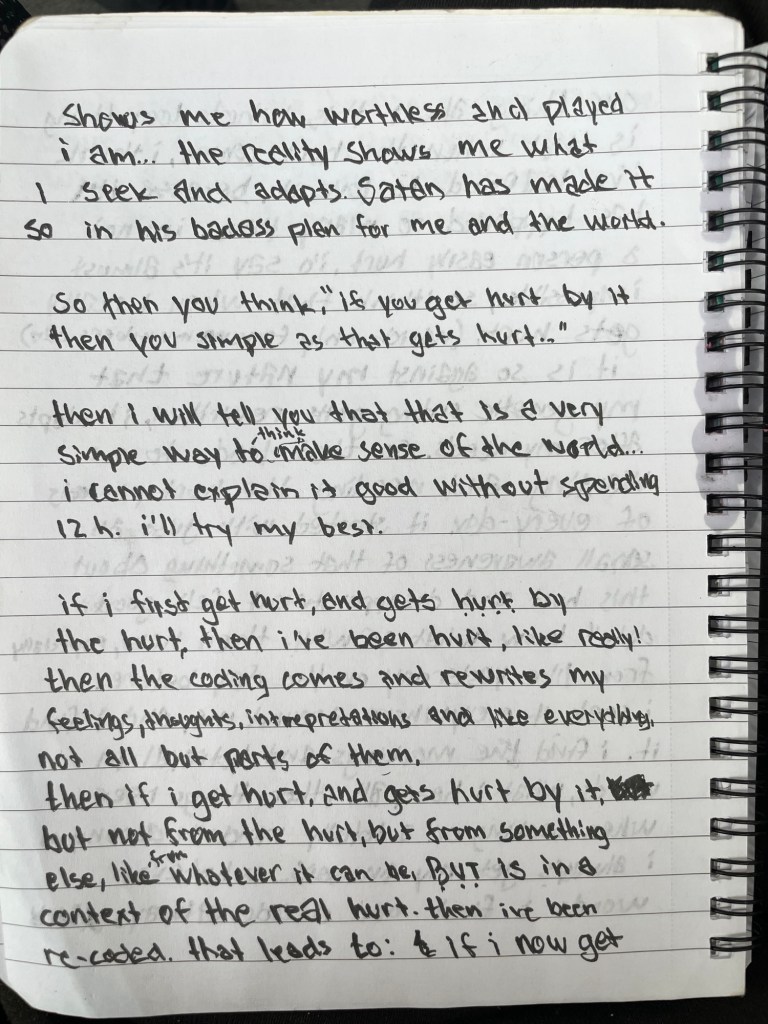 shows me how worthless and played
i am... the reality shows me what
I seek and adapts. Satan has made it
so in his badass plan for me and the world.
so then you think, "if you get hurt by it
then you simple as that gets hurt.."
then i will tell you that that is a very
simple way to think make sense of the world...
i cannot explain it good without spending
12 h. i'll try my best.
if i first get hurt, and gets hurt by
the hurt, then i've been hurt, like really!
then the coding comes and rewrites my
feelings, thoughts, intrepretations and like everything.
not all but parts of them.
then if i get hurt, and gets hurt by it,
but not from the hurt, but from something
else, like from whatever it can be, BUT is in a
context of the real hurt. then ive been
re-coded. that leads to: if i now get